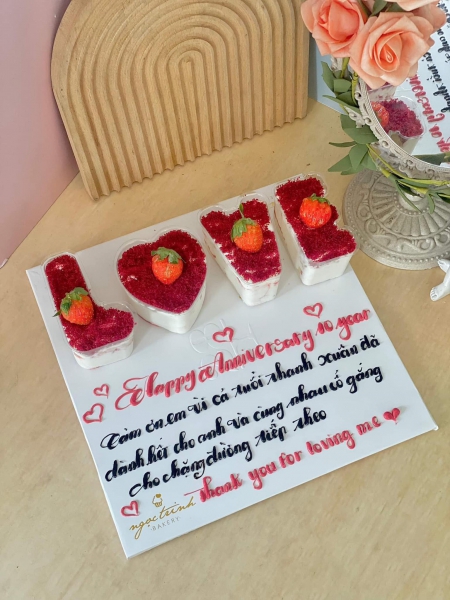 LOVE
Happy Anniversary 10 year
Cảm ơn em vì cả tuổi thanh xuân đã
dành hết cho anh và cùng nhau cố gắng
cho chặng đường tiếp theo
Thank you for loving me
ngọc trinh
BAKERY